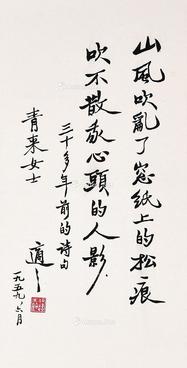 山風吹亂了窓紙上的松痕
吹不散我心頭的人影
三十多年前的詩句
青来女士
適之
一九五九、六月